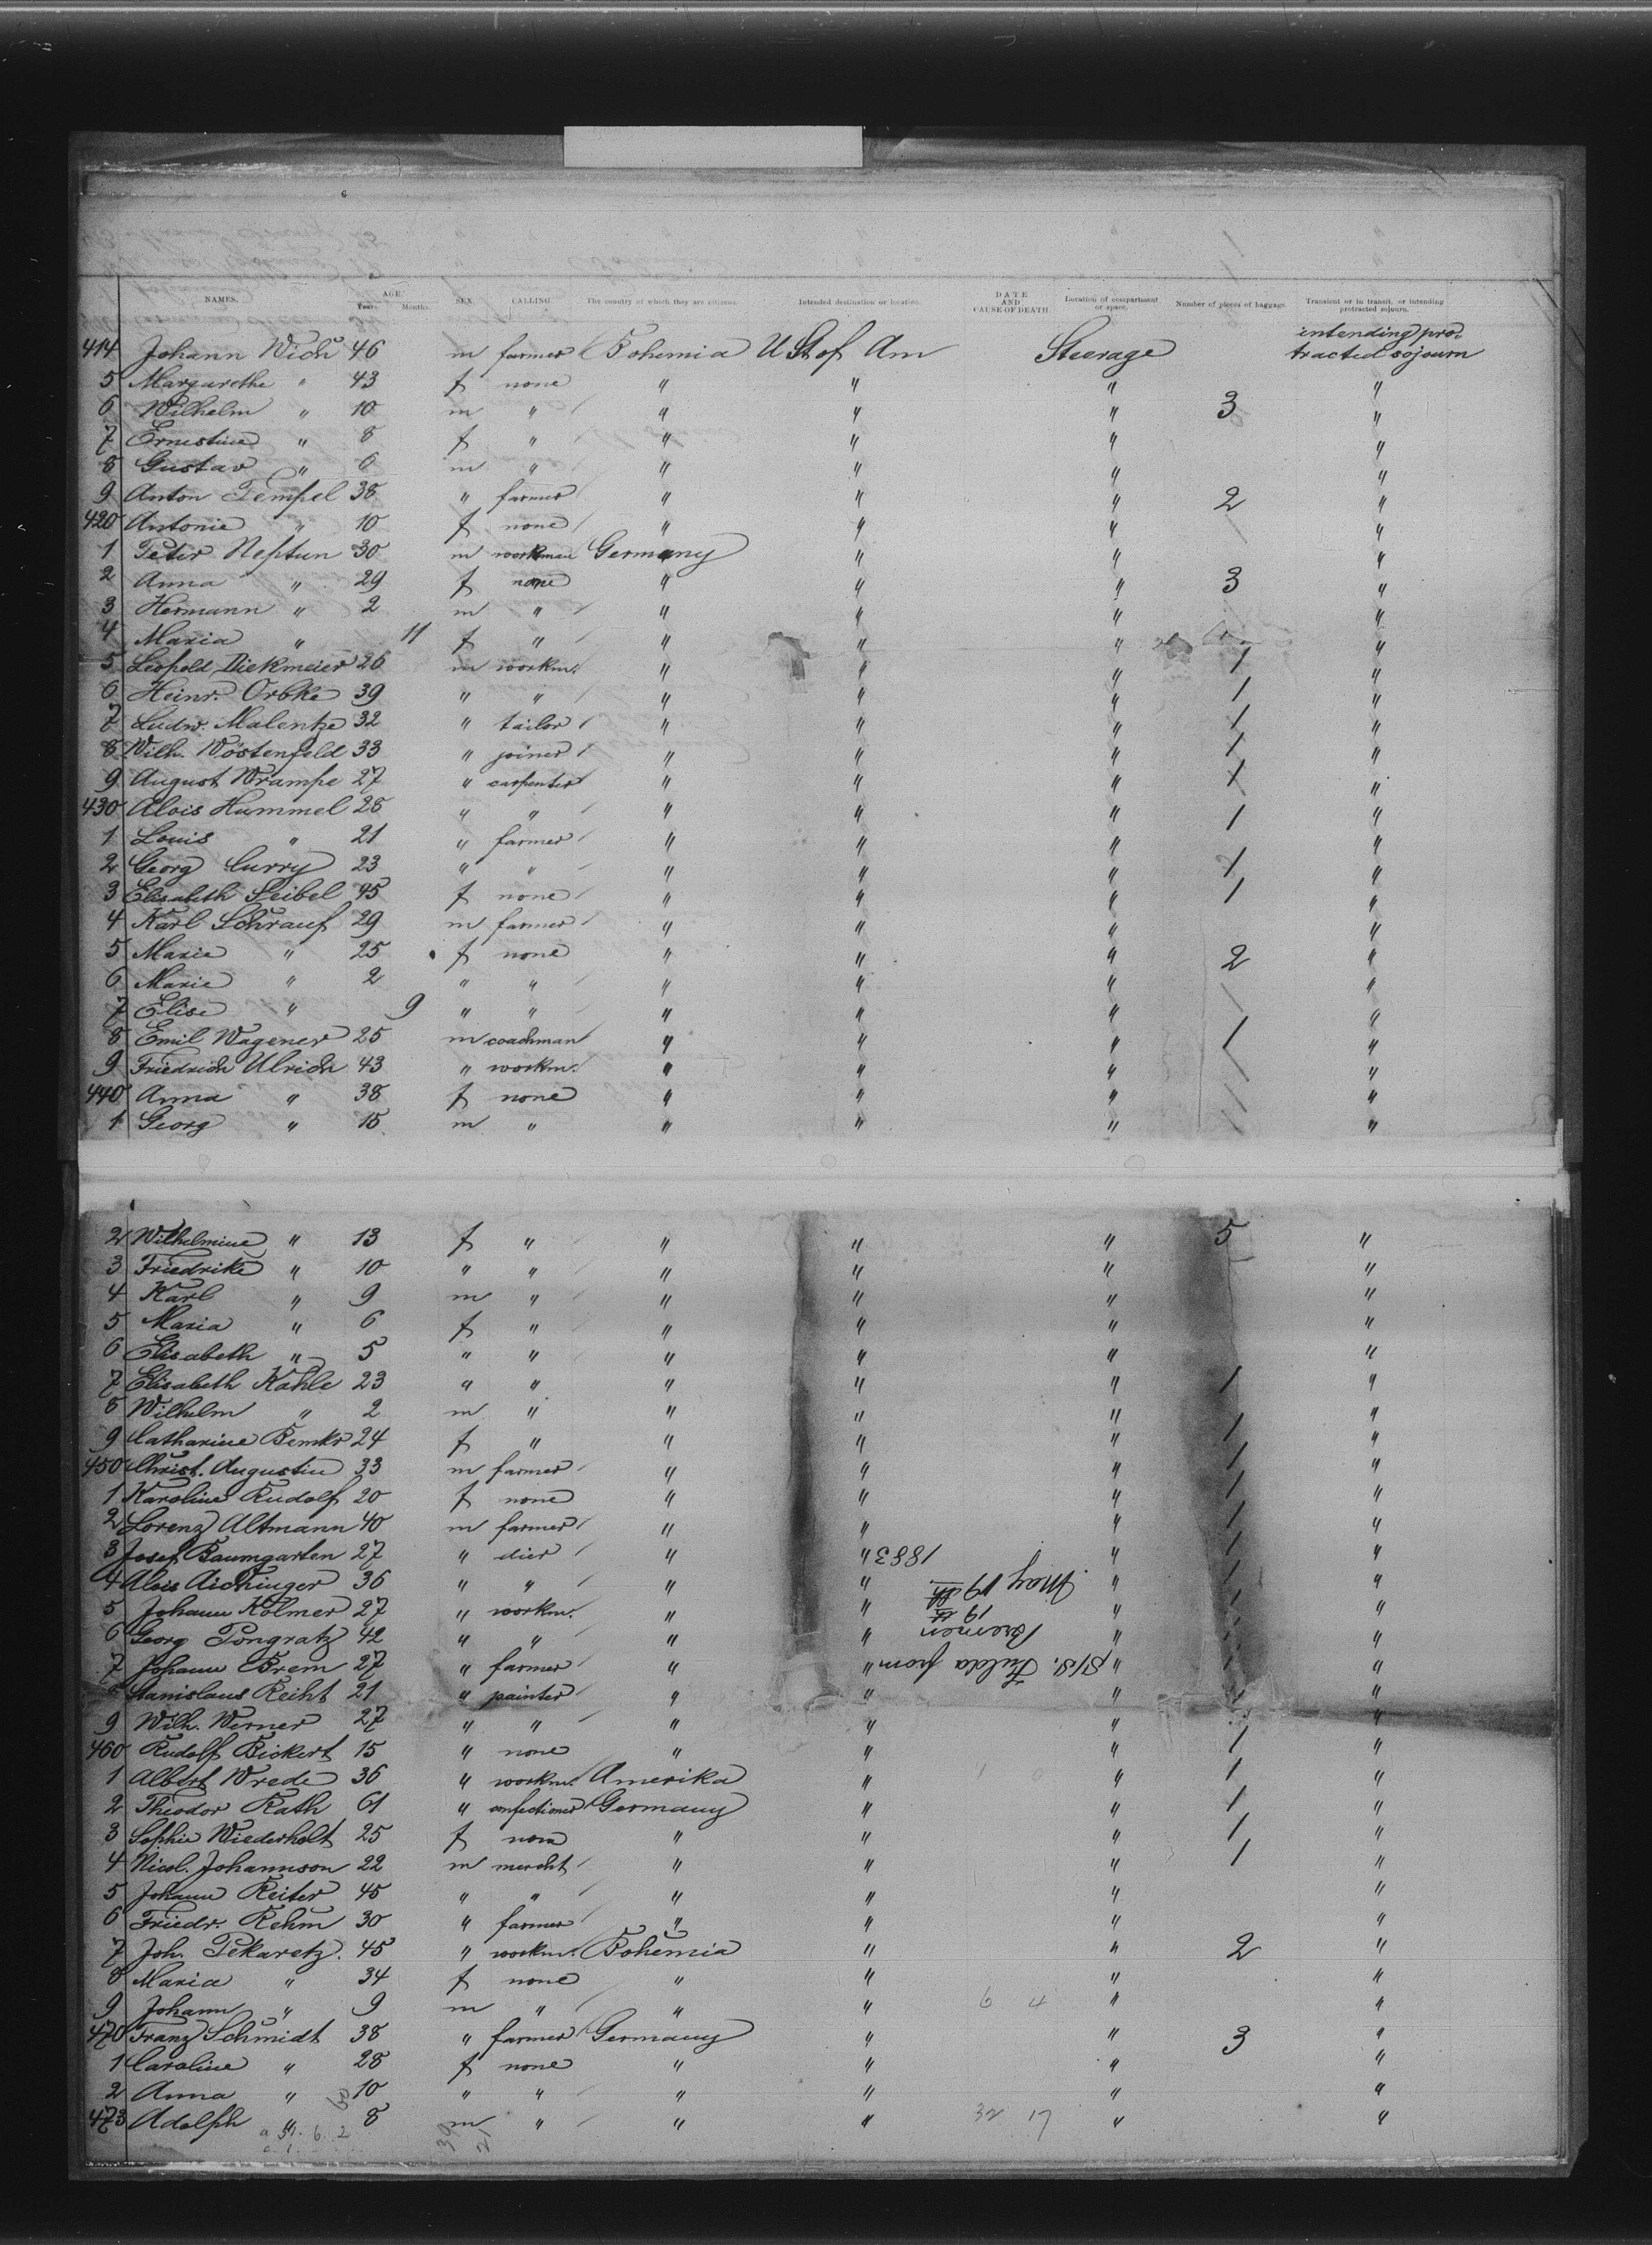 NAMES. AGE. Years. Months. SEX. CALLING. The country of which they are citizens. Intended destination or location. DATE AND CAUSE OF DEATH. Location of compartment or space. Number of pieces of baggage. Transient or in transit, or intending protracted sojourn.
414 Johann Wich 46 m farmer Bohemia U St of Am Steerage intending protracted sojourn
5 Margarethe " 43 f none " " " "
6 Wilhelm " 10 m " " " " 3 "
7 Ernestine " 8 f " " " " "
8 Gustav " 6 m " " " " "
9 Anton Tempel 38 " farmer " " " 2 "
420 Antonie " 10 f none " " " "
1 Peter Neptun 30 m workman Germany " " "
2 Anna " 29 f none " " " 3 "
3 Hermann " 2 m " " " " "
4 Maria " 11 f " " " " "
5 Leopold Diekmeier 26 m workm. " " " 1 "
6 Heinr. Orbke 39 " " " " " 1 "
7 Ludw. Malentze 32 " tailor " " " 1 "
8 Wilh. Wöstenfeld 33 " joiner " " " 1 "
9 August Wrampe 27 " carpenter " " " 1 "
430 Alois Hummel 28 " " " " " 1 "
1 Louis " 21 " farmer " " " "
2 Georg Curry 23 " " " " " 1 "
3 Elisabeth Seibel 45 f none " " " 1 "
4 Karl Schrauf 29 m farmer " " " "
5 Marie " 25 f none " " " 2 "
6 Marie " 2 " " " " " "
7 Elise " 9 " " " " " "
8 Emil Wagener 25 m coachman " " " 1 "
9 Friedrich Ulrich 43 " workm. " " " "
440 Anna " 38 f none " " " "
1 Georg " 15 m " " " " "
2 Wilhelmine " 13 f " " " " 5 "
3 Friedrike " 10 " " " " " "
4 Karl " 9 m " " " " "
5 Maria " 6 f " " " " "
6 Elisabeth " 5 " " " " " "
7 Elisabeth Kahle 23 " " " " " 1 "
8 Wilhelm " 2 m " " " " "
9 Catharine Bemkr 24 f " " " " 1 "
450 Christ. Augustin 33 m farmer " " " 1 "
1 Karoline Rudolf 20 f none " " " 1 "
2 Lorenz Altmann 40 m farmer " " " 1 "
3 Josef Baumgarten 27 " dier " " " 1 "
4 Alois Aichinger 36 " " " " " 1 "
5 Johann Kolmer 27 " workm. " " " "
6 Georg Pongratz 42 " " " " " "
7 Johann Brem 27 " farmer " " " "
Stanislaus Reiht 21 " painter " " " "
9 Wilh. Werner 27 " " " " " "
460 Rudolf Bickert 15 " none " " " 1 "
1 Albert Wrede 36 " workm. Amerika " " 1 "
2 Theodor Rath 61 " confectioner Germany " " 1 "
3 Sophie Wiederholt 25 f none " " " 1 "
4 Nicol. Johannson 22 m mercht " " " 1 "
5 Johann Reiter 45 " " " " " "
6 Friedr. Rehm 30 " farmer " " " "
7 Joh. Pekaretz. 45 " workm. Bohemia " " 2 "
8 Maria " 34 f none " " " "
9 Johann " 9 m " " " 6 4 " "
470 Franz Schmidt 38 " farmer Germany " " 3 "
1 Caroline " 28 f none " " " "
2 Anna " 10 " " " " " "
473 Adolph " 8 m " " " 32 17 " "
S/S. Fulda from
Bremen
19th
May 19th
1883